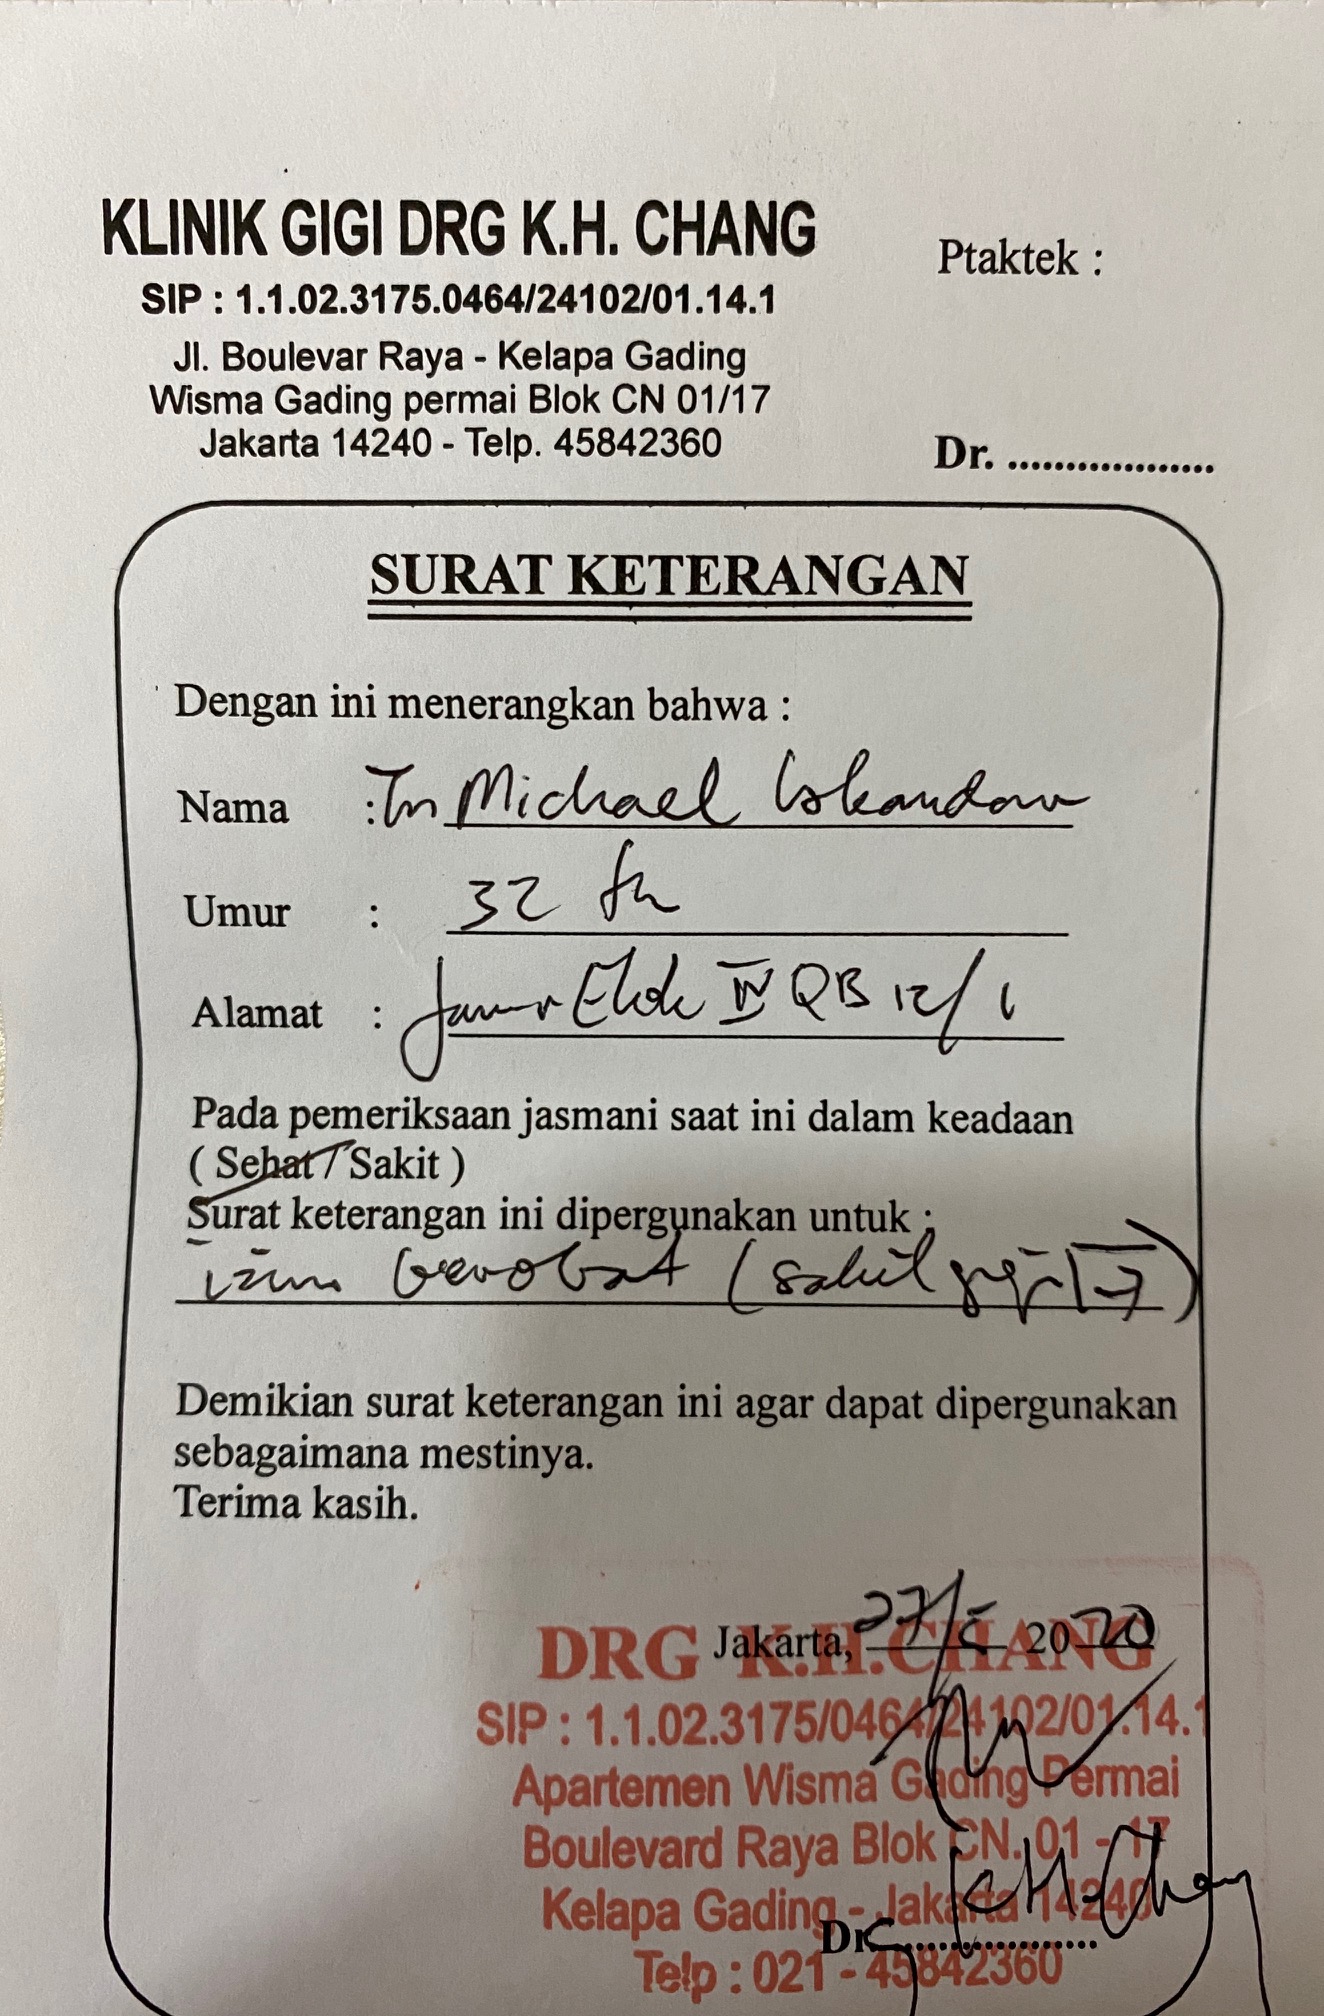 KLINIK GIGI DRG K.H. CHANG
SIP : 1.1.02.3175.0464/24102/01.14.1
Jl. Boulevar Raya - Kelapa Gading
Wisma Gading permai Blok CN 01/17
Jakarta 14240 - Telp. 45842360
Ptaktek :
Dr. ..................
SURAT KETERANGAN
Dengan ini menerangkan bahwa :
Nama : Tn Michael Iskandar
Umur : 32 th
Alamat : Janur Elok IV QB 12/1
Pada pemeriksaan jasmani saat ini dalam keadaan
( Sehat / Sakit )
Surat keterangan ini dipergunakan untuk :
izin berobat (sakit gigi 7)
Demikian surat keterangan ini agar dapat dipergunakan
sebagaimana mestinya.
Terima kasih.
Jakarta, 27/ 2020
DRG K.H.CHANG
SIP : 1.1.02.3175/0464/24102/01.14.1
Apartemen Wisma Gading Permai
Boulevard Raya Blok CN. 01 - 17
Kelapa Gading - Jakarta 14240
Drg K.H.Chang
Telp : 021 - 45842360